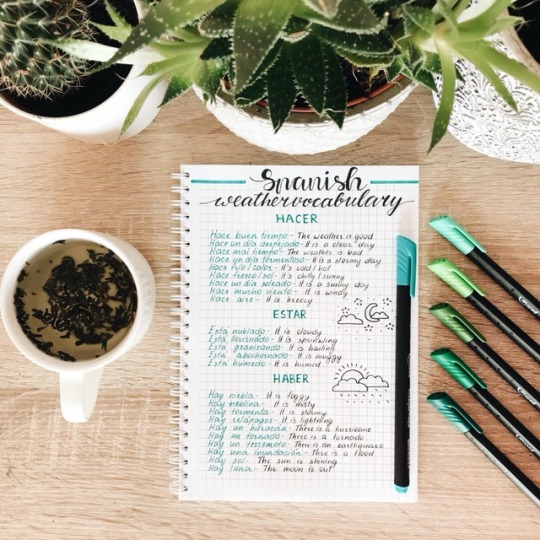 Spanish
weather vocabulary
HACER
Hace buen tiempo - The weather is good
Hace un día despejado - It is a clear day
Hace mal tiempo - The weather is bad
Hace un día tormentoso - It is a stormy day
Hace frío/calor - It's cold/hot
Hace fresco/sol - It's chilly/sunny
Hace un día soleado - It is a sunny day
Hace mucho viento - It is windy
Hace aire - It is breezy
ESTAR
Está nublado - It is cloudy
Está lloviznando - It is sprinkling
Está granizando - It is hailing
Está abochornado - It is muggy
Está húmedo - It is humid
HABER
Hay niebla - It is foggy
Hay neblina - It is misty
Hay tormenta - It is stormy
Hay relámpagos - It is lightning
Hay un huracán - There is a hurricane
Hay un tornado - There is a tornado
Hay un terremoto - There is an earthquake
Hay una inundación - There is a flood
Hay sol - The sun is shining
Hay luna - The moon is out